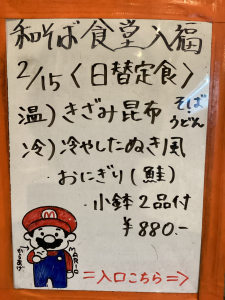 和そば食堂入福
2/15〈日替定食〉
温）きざみ昆布 そば・うどん
冷）冷やしたぬき風
・おにぎり（鮭）
・小鉢2品付
￥880.-
からあげ
MARIO
＝入口こちら＝＞